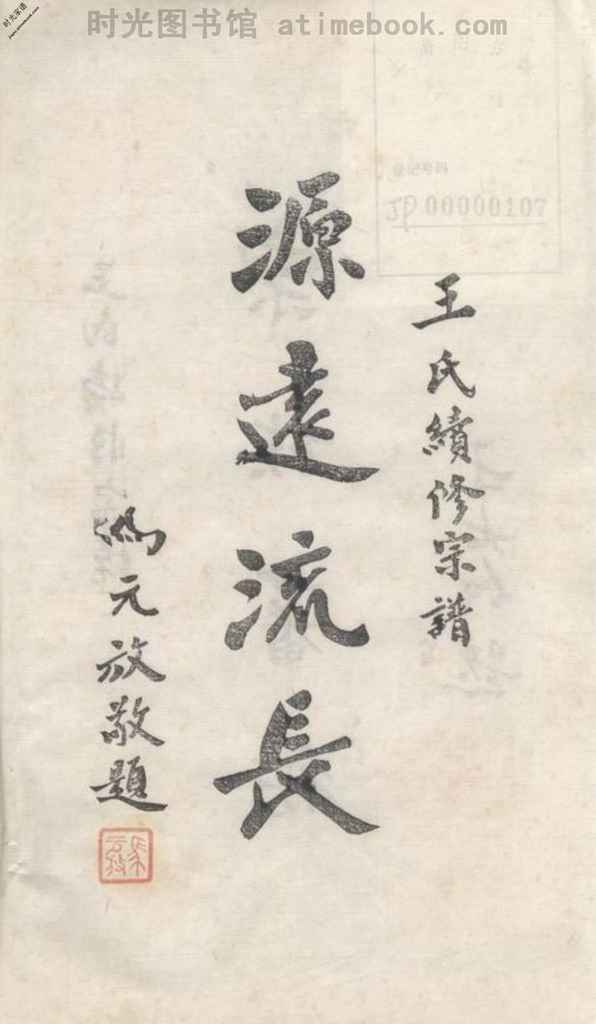 时光图书馆 atimebook.com
登记号码
JP 00000107
王氏續修宗譜
源遠流長
馮元放敬題